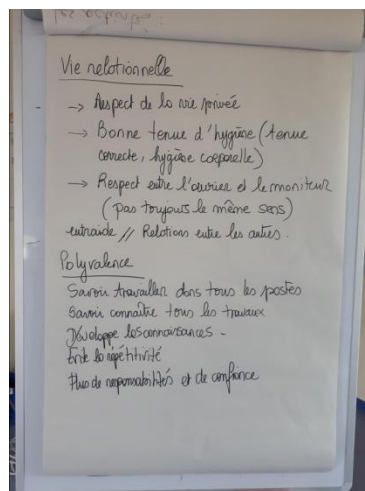 Vie relationnelle
→ Respect de la vie privée
→ Bonne tenue d'hygiène (tenue
correcte, hygiène corporelle)
→ Respect entre l'ouvrier et le moniteur
(pas toujours le même sens)
entraide // Relations entre les autres.
Polyvalence
Savoir travailler dans tous les postes
Savoir connaître tous les travaux
Développe les connaissances -
Evite la répétitivité
Plus de responsabilités et de confiance